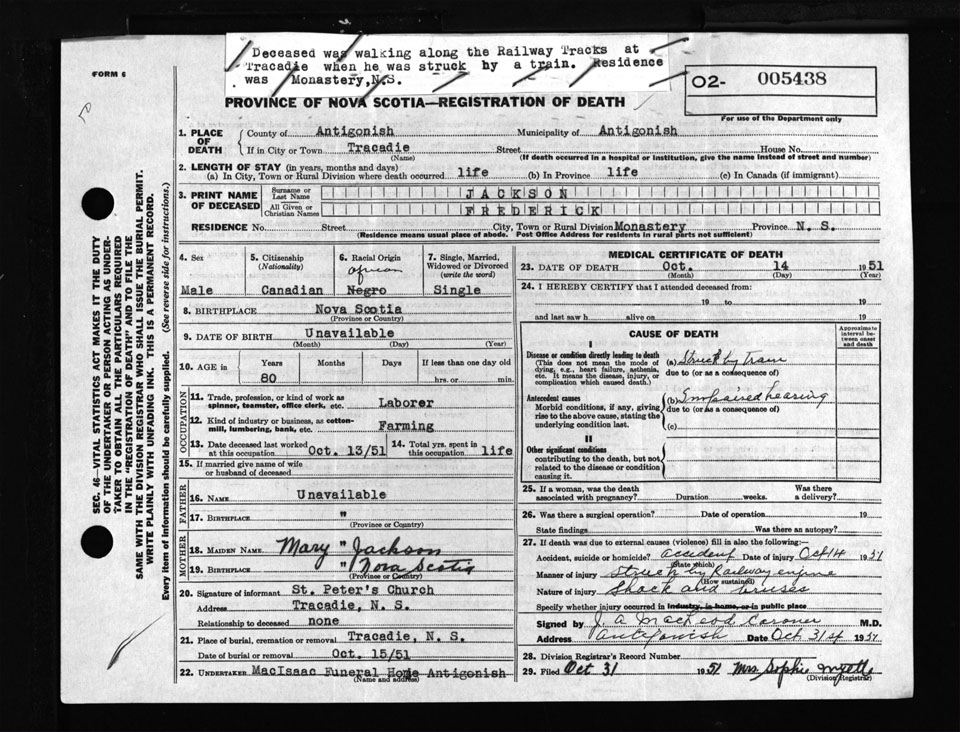 Deceased was walking along the Railway Tracks at
Tracadie when he was struck by a train. Residence
was Monastery, N.S.
FORM 6
O2- 005438
PROVINCE OF NOVA SCOTIA—REGISTRATION OF DEATH
For use of the Department only
1. PLACE OF DEATH
County of Antigonish Municipality of Antigonish
If in City or Town Tracadie Street House No.
(Name) (If death occurred in a hospital or institution, give the name instead of street and number)
2. LENGTH OF STAY (in years, months and days)
(a) In City, Town or Rural Division where death occurred life (b) In Province life (c) In Canada (if immigrant)
3. PRINT NAME OF DECEASED
Surname or Last Name JACKSON
All Given or Christian Names FREDERICK
RESIDENCE No. Street City, Town or Rural Division Monastery Province N. S.
(Residence means usual place of abode. Post Office Address for residents in rural parts not sufficient)
4. Sex
Male
5. Citizenship (Nationality)
Canadian
6. Racial Origin
African
Negro
7. Single, Married, Widowed or Divorced (write the word)
Single
8. BIRTHPLACE Nova Scotia
(Province or Country)
9. DATE OF BIRTH Unavailable
(Month) (Day) (Year)
10. AGE in Years Months Days If less than one day old
80 hrs. or min.
OCCUPATION
11. Trade, profession, or kind of work as spinner, teamster, office clerk, etc. Laborer
12. Kind of industry or business, as cotton-mill, lumbering, bank, etc. Farming
13. Date deceased last worked at this occupation Oct. 13/51
14. Total yrs. spent in this occupation life
15. If married give name of wife or husband of deceased
FATHER
16. NAME Unavailable
17. BIRTHPLACE "
(Province or Country)
MOTHER
18. MAIDEN NAME Mary " Jackson
19. BIRTHPLACE " Nova Scotia
(Province or Country)
20. Signature of informant St. Peter's Church
Address Tracadie, N. S.
Relationship to deceased none
21. Place of burial, cremation or removal Tracadie, N. S.
Date of burial or removal Oct. 15/51
22. UNDERTAKER MacIsaac Funeral Home Antigonish
(Name and address)
MEDICAL CERTIFICATE OF DEATH
23. DATE OF DEATH Oct. 14 1951
(Month) (Day) (Year)
24. I HEREBY CERTIFY that I attended deceased from:
19 to 19
and last saw h alive on 19
CAUSE OF DEATH
Approximate interval between onset and death
I
Disease or condition directly leading to death
(This does not mean the mode of dying, e.g., heart failure, asthenia, etc. It means the disease, injury, or complication which caused death.)
(a) Struck by Train
due to (or as a consequence of)
Antecedent causes
Morbid conditions, if any, giving rise to the above cause, stating the underlying condition last.
(b) Impaired hearing
due to (or as a consequence of)
(c)
II
Other significant conditions
contributing to the death, but not related to the disease or condition causing it.
25. If a woman, was the death associated with pregnancy? Duration weeks. Was there a delivery?
26. Was there a surgical operation? Date of operation 19
State findings Was there an autopsy?
27. If death was due to external causes (violence) fill in also the following:—
Accident, suicide or homicide? accident Date of injury Oct 14 1951
(State which)
Manner of injury Struck by Railway engine
(How sustained)
Nature of injury Shock and bruises
Specify whether injury occurred in industry, in home, or in public place
Signed by J. A. MacLeod Coroner M.D.
Address Antigonish Date Oct 31st 1951
28. Division Registrar's Record Number
29. Filed Oct 31 1951 Mrs. Sophie
(Division Registrar)
SEC. 46—VITAL STATISTICS ACT MAKES IT THE DUTY
OF THE UNDERTAKER OR PERSON ACTING AS UNDER-
TAKER TO OBTAIN ALL THE PARTICULARS REQUIRED
IN THE "REGISTRATION OF DEATH" AND TO FILE THE
SAME WITH THE DIVISION REGISTRAR WHO SHALL ISSUE THE BURIAL PERMIT.
WRITE PLAINLY WITH UNFADING INK. THIS IS A PERMANENT RECORD.
Every item of information should be carefully supplied. (See reverse side for instructions.)